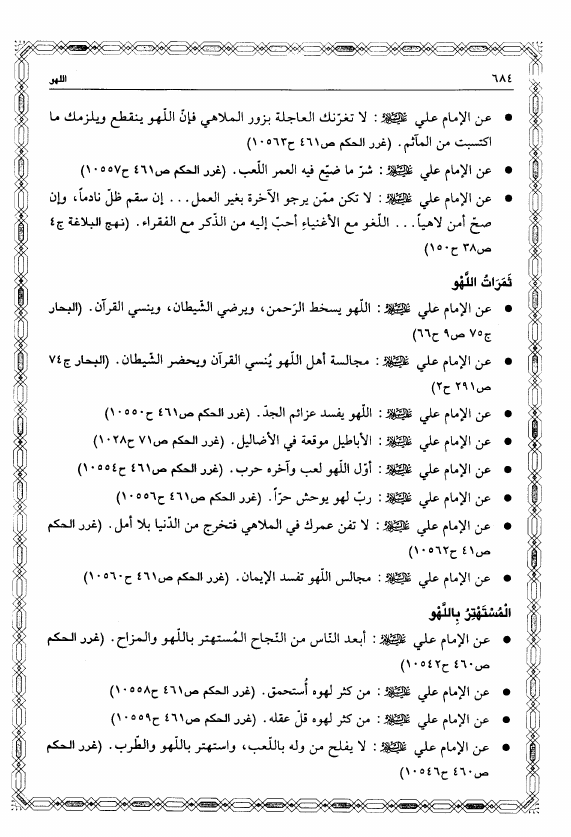 ٦٨٤ اللهو
• عن الإمام علي عليه السلام : لا تغرّنك العاجلة بزور الملاهي فإنّ اللّهو ينقطع ويلزمك ما
اكتسبت من المآثم. (غرر الحكم ص٤٦١ ح١٠٥٦٣)
• عن الإمام علي عليه السلام : شرّ ما ضيّع فيه العمر اللّعب. (غرر الحكم ص٤٦١ ح١٠٥٥٧)
• عن الإمام علي عليه السلام : لا تكن ممّن يرجو الآخرة بغير العمل... إن سقم ظلّ نادماً، وإن
صحّ أمن لاهياً... اللّغو مع الأغنياء أحبّ إليه من الذّكر مع الفقراء. (نهج البلاغة ج٤
ص٣٨ ح١٥٠)
ثَمَرَاتُ اللَّهْو
• عن الإمام علي عليه السلام : اللّهو يسخط الرّحمن، ويرضي الشّيطان، وينسي القرآن. (البحار
ج٧٥ ص٩ ح٦٦)
• عن الإمام علي عليه السلام : مجالسة أهل اللّهو يُنسي القرآن ويحضر الشّيطان. (البحار ج٧٤
ص٢٩١ ح٢)
• عن الإمام علي عليه السلام : اللّهو يفسد عزائم الجدّ. (غرر الحكم ص٤٦١ ح١٠٥٥٠)
• عن الإمام علي عليه السلام : الأباطيل موقعة في الأضاليل. (غرر الحكم ص٧١ ح١٠٢٨)
• عن الإمام علي عليه السلام : أوّل اللّهو لعب وآخره حرب. (غرر الحكم ص٤٦١ ح١٠٥٥٤)
• عن الإمام علي عليه السلام : ربّ لهو يوحش حرّاً. (غرر الحكم ص٤٦١ ح١٠٥٥٦)
• عن الإمام علي عليه السلام : لا تفن عمرك في الملاهي فتخرج من الدّنيا بلا أمل. (غرر الحكم
ص٤١ ح١٠٥٦٢)
• عن الإمام علي عليه السلام : مجالس اللّهو تفسد الإيمان. (غرر الحكم ص٤٦١ ح١٠٥٦٠)
الْمُسْتَهْتِرُ بِاللَّهْوِ
• عن الإمام علي عليه السلام : أبعد النّاس من النّجاح المُستهتر باللّهو والمزاح. (غرر الحكم
ص٤٦٠ ح١٠٥٤٢)
• عن الإمام علي عليه السلام : من كثر لهوه أُستحمق. (غرر الحكم ص٤٦١ ح١٠٥٥٨)
• عن الإمام علي عليه السلام : من كثر لهوه قلّ عقله. (غرر الحكم ص٤٦١ ح١٠٥٥٩)
• عن الإمام علي عليه السلام : لا يفلح من وله باللّعب، واستهتر باللّهو والطّرب. (غرر الحكم
ص٤٦٠ ح١٠٥٤٦)